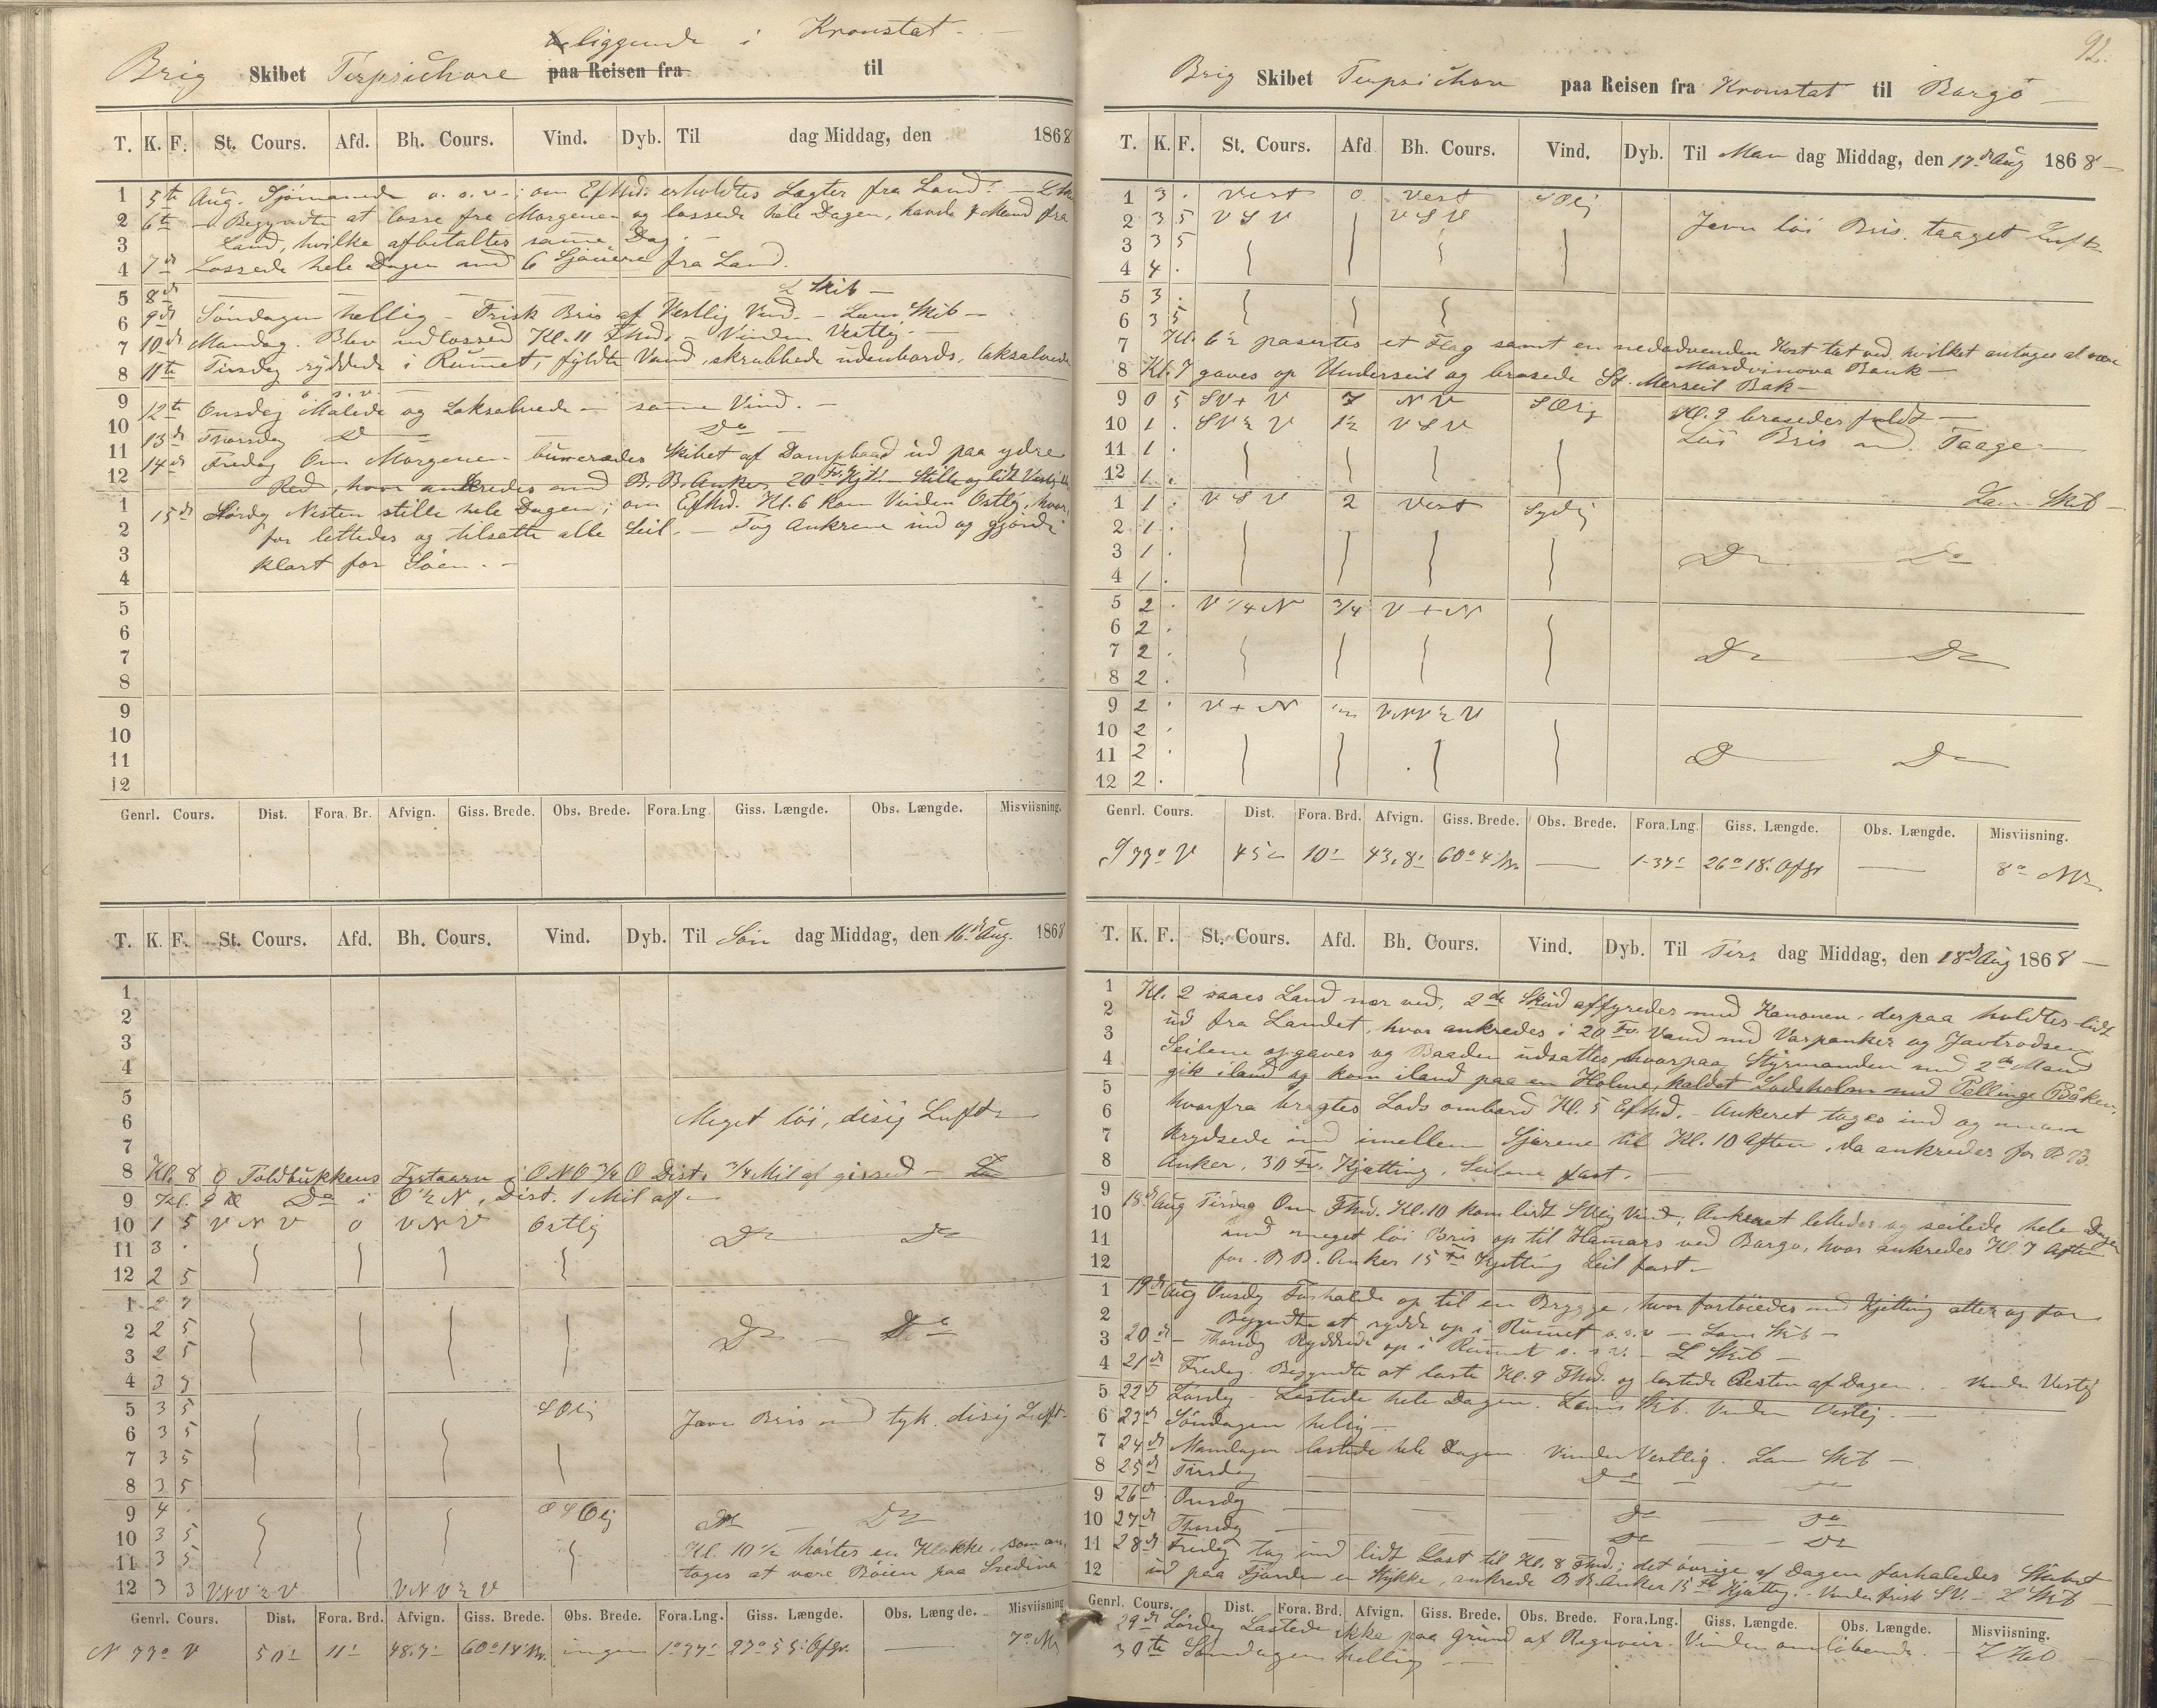 liggende i Kronstat
Brig Skibet Terpsichore paa Reisen fra til
T. K. F. St. Cours. Afd. Bh. Cours. Vind. Dyb. Til dag Middag, den 1868
1 5te Aug. o. s. v. om Efmd. erholdtes Lægter fra Land.
2 6te Begyndte at losse fra Morgenen og lossede hele Dagen, havde 7 Mand fra
3 Land, hvilke afbetaltes samme Dag.
4 7de Lossede hele Dagen med 6 fra Land.
5 8de L Skib
6 9de Søndagen hellig - Frisk Bris af Vestlig Vind. - Lens Skib -
7 10de Mandag. Blev udlossed Kl. 11 Fmd. Vinden Vestlig. -
8 11te Tirsdag ryddede i Rumet, fyldte Vand, skrubbede udenbords,
9 o. s. v.
12te Onsdag Malede og - samme Vind. -
10 13de Thorsdag Do Do
11 14de Fredag Om Morgenen Skibet af Dampbaad ud paa ydre
12 Red, hvor ankredes med B.B. Anker 20 Fv. Kjt. Stille og lidt Vestlig
1 15de Lørdag Nesten stille hele Dagen; om Efmd. Kl. 6 kom Vinden Ostlig, hvor-
2 for lettedes og tilsatte alle Seil. - Tog Ankrene ind og gjorde
3 klart for Søen. -
4
5
6
7
8
9
10
11
12
Genrl. Cours. Dist. Fora. Br. Afvign. Giss. Brede. Obs. Brede. Fora.Lng Giss. Længde. Obs. Længde. Misviisning.
T. K. F. St. Cours. Afd. Bh. Cours. Vind. Dyb. Til Søn dag Middag, den 16de Aug. 1868
1
2
3
4
5
6 Meget løi, disig Luft
7
8 Kl. 8 Toldbukkens Fyrtaarn i ONO 3/4 O Dist. 3/4 Mil af gissed -
9 Kl. 9 Do i O 1/2 N, Dist. 1 Mil af -
10 1 5 VNV 0 VNV Ostlig Do Do
11 3 .
12 2 5
1 2 7
2 2 5 Do - Do
3 2 5
4 3 3
5 3 5 SOlig Jævn Bris med tyk disig Luft
6 3 5
7 3 5
8 3 5
9 4 . OSOlig Do - Do
10 3 5 Kl. 10 1/2 hørtes en Klokke, som an-
11 3 5 tages at være Bøien paa
12 3 3 VNV 1/2 V VNV 1/2 V
Genrl. Cours. Dist. Fora. Brd. Afvign. Giss. Brede. Obs. Brede. Fora.Lng. Giss. Længde. Obs. Længde. Misviisning
N 77° V 50' 11' 48.7' 60° 14' N. ingen 1° 37' 27° 55' OfGr. 7° NV
92.
Brig Skibet Terpsichore paa Reisen fra Kronstat til Borgo
T. K. F. St. Cours. Afd Bh. Cours. Vind. Dyb. Til Man dag Middag, den 17de Aug 1868
1 3 . Vest 0 Vest SOlig
2 3 5 VSV VSV Jevn løi Bris. taaget Luft
3 3 5
4 4 .
5 3 .
6 3 5
7 Kl. 6 1/2 pasertes et Flag samt en nedadvenden Kost tæt ved, hvilket antages at være
Mordvinova Bank -
8 Kl. 7 gaves op Underseil og brasede St. Merseil Bak -
9 0 5 SV + V 7 NV SOlig Kl. 9 brasedes fuldt -
10 1 . SV 1/2 V 1 1/2 VSV Løi Bris med Taage
11 1 .
12 1 .
1 1 . VSV 2 Vest Sydlig Lens Skib
2 1 .
3 1 . Do Do
4 1 .
5 2 . V 1/4 N 3/4 V + N
6 2 .
7 2 . Do Do
8 2 .
9 2 . V + N 1/2 VNV 1/2 V
10 2 .
11 2 . Do Do
12 2 .
Genrl. Cours. Dist. Fora. Brd. Afvign. Giss. Brede. Obs. Brede. Fora.Lng. Giss. Længde. Obs. Længde. Misviisning.
S 77° V 45' 10' 43,8' 60° 4' N. - 1-37' 26° 18' OfGr - 8° NV
T. K. F. St. Cours. Afd. Bh. Cours. Vind. Dyb. Til Tirs dag Middag, den 18de Aug 1868
1 Kl. 2 saaes Land nær ved, 2de Skud affyredes med Kanonen, derpaa holdtes lidt
2 ud fra Landet, hvor ankredes i 20 Fv. Vand med Varpanker og
3 Seilene opgaves og Baaden udsattes, hvorpaa Styrmanden med 2de Mand
4 gik iland og kom iland paa en Holme, kaldet Lodsholm med Pellinge Båken,
5 hvorfra bragtes Lods ombord Kl. 5 Efmd. - Ankeret toges ind og man
6 krydsede ind imellem Skjærene til Kl. 10 Aften, da ankredes for B.B.
7 Anker, 30 Fv. Kjætting, Seilene fast. -
8
9 18de Aug Tirsdag Om Fmd. Kl. 10 kom lidt SVlig Vind, Ankeret lettedes og seilede hele Dagen
10 med meget løi Bris op til Hamars ved Borgo, hvor ankredes Kl. 7 Aften
11 for B.B. Anker 15 Fv Kjætting Seil fast -
12
1 19de Aug Onsdg Forhalede op til en Brygge, hvor fortøiedes med Kjetting atter og for
2 Begyndte at rydde op i Rumet o. s. v. - Lens Skib -
3 20de - Thorsdg Ryddede op i Rumet o. s. v. - L Skib -
4 21de Fredag. Begyndte at laste Kl. 9 Fmd. og lastede Resten af Dagen. - Vinden Vestlig
5 22de Lørdg - Lastede hele Dagen. Lens Skib. Vinden Vestlig. -
6 23de Søndagen hellig -
7 24de Mandagen lastede hele Dagen. Vinden Vestlig. Lens Skib -
8 25de Tirsdag Do -
9 26de Onsdg Do Do
10 27de Thorsdg Do Do
11 28de Fredag tog ind lidt Last til Kl. 8 Fmd; det øvrige af Dagen forhaledes Skibet
12 ud paa Fjorden et Stykke, ankrede B.B. Anker 15 Fv Kjætting. - Vinden frisk SV. - L Skib
Genrl. Cours. Dist. Fora. Brd. Afvign. Giss. Brede. Obs. Brede. Fora.Lng. Giss. Længde. Obs. Længde. Misviisning.
29de Lørdag Lastede ikke paa Grund af Regnveir. Vinden omløbende. - L Skib
30te Søndagen hellig -